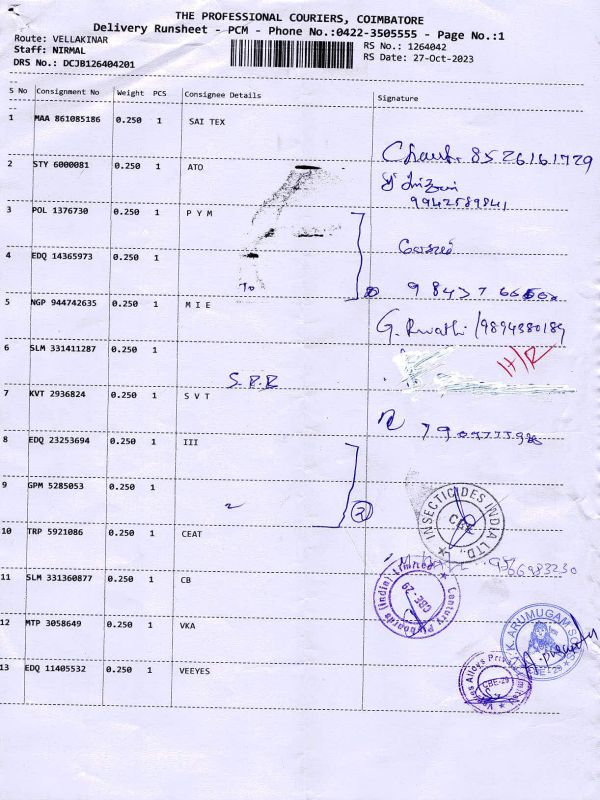 THE PROFESSIONAL COURIERS, COIMBATORE
Delivery Runsheet - PCM - Phone No.:0422-3505555 - Page No.:1
Route: VELLAKINAR
RS No.: 1264042
Staff: NIRMAL
RS Date: 27-Oct-2023
DRS No.: DCJB126404201
S No Consignment No Weight PCS Consignee Details Signature
1 MAA 861085186 0.250 1 SAI TEX
8526161729
2 STY 6000081 0.250 1 ATO
9942589841
3 POL 1376730 0.250 1 P Y M
4 EDQ 14365973 0.250 1
To
5 NGP 944742635 0.250 1 M I E
G. /9894380189
6 SLM 331411287 0.250 1
H/R
S.R.R
7 KVT 2936824 0.250 1 S V T
8 EDQ 23253694 0.250 1 III
9 GPM 5285053 1 0.250 1
2
INSECTICIDES INDIA LTD.
CBE
10 TRP 5921086 0.250 1 CEAT
11 SLM 331360877 0.250 1 CB
Century Plyboards (India) Limited
CBE-29
12 MTP 3058649 0.250 1 VKA
K ARUMUGAM
CBE-29
13 EDQ 11405532 0.250 1 VEEYES
Alloys Private Limited
CBE-29